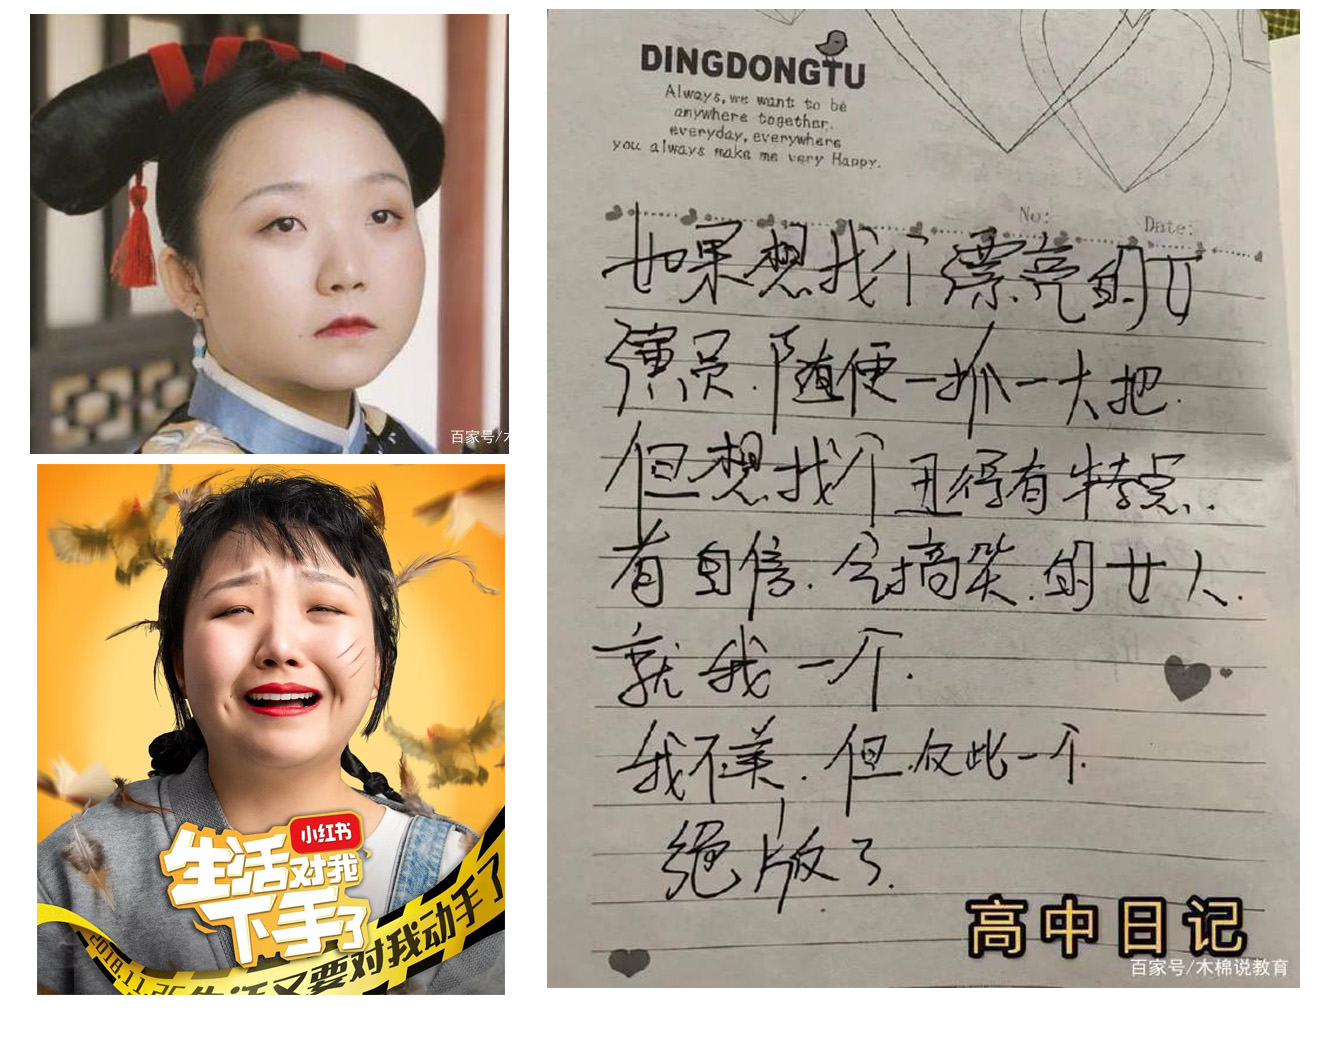 百家号/木
小红书
生活对我
下手了
2018.11.25
生活又要对我动手了
DINGDONGTU
Always, we want to be
anywhere together.
everyday, everywhere
you always make me very Happy.
No:
Date:
如果想找个漂亮的女
演员.随便一抓一大把.
但想找个丑得有特点..
有自信.会搞笑.的女人.
就我一个.
我不美,但仅此一个.
绝版了.
高中日记
百家号/木棉说教育